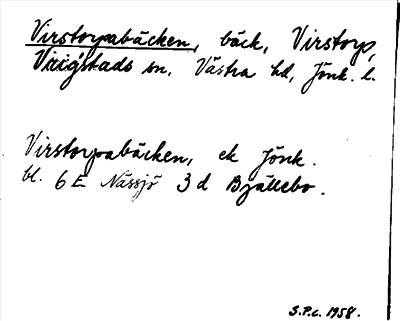 Virstorpabäcken, bäck, Virstorp,
Vrigstads sn. Västra hd, Jönk. l.
Virstorpabäcken, ek Jönk.
bl. 6 E Nässjö 3 d Bjällebo.
S.P.c. 1958.